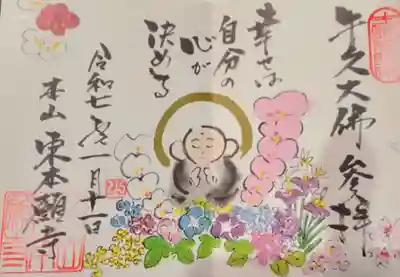 牛久大佛 参拝
幸せは
自分の
心が
決める
令和七年一月十二日
本山 東本願寺